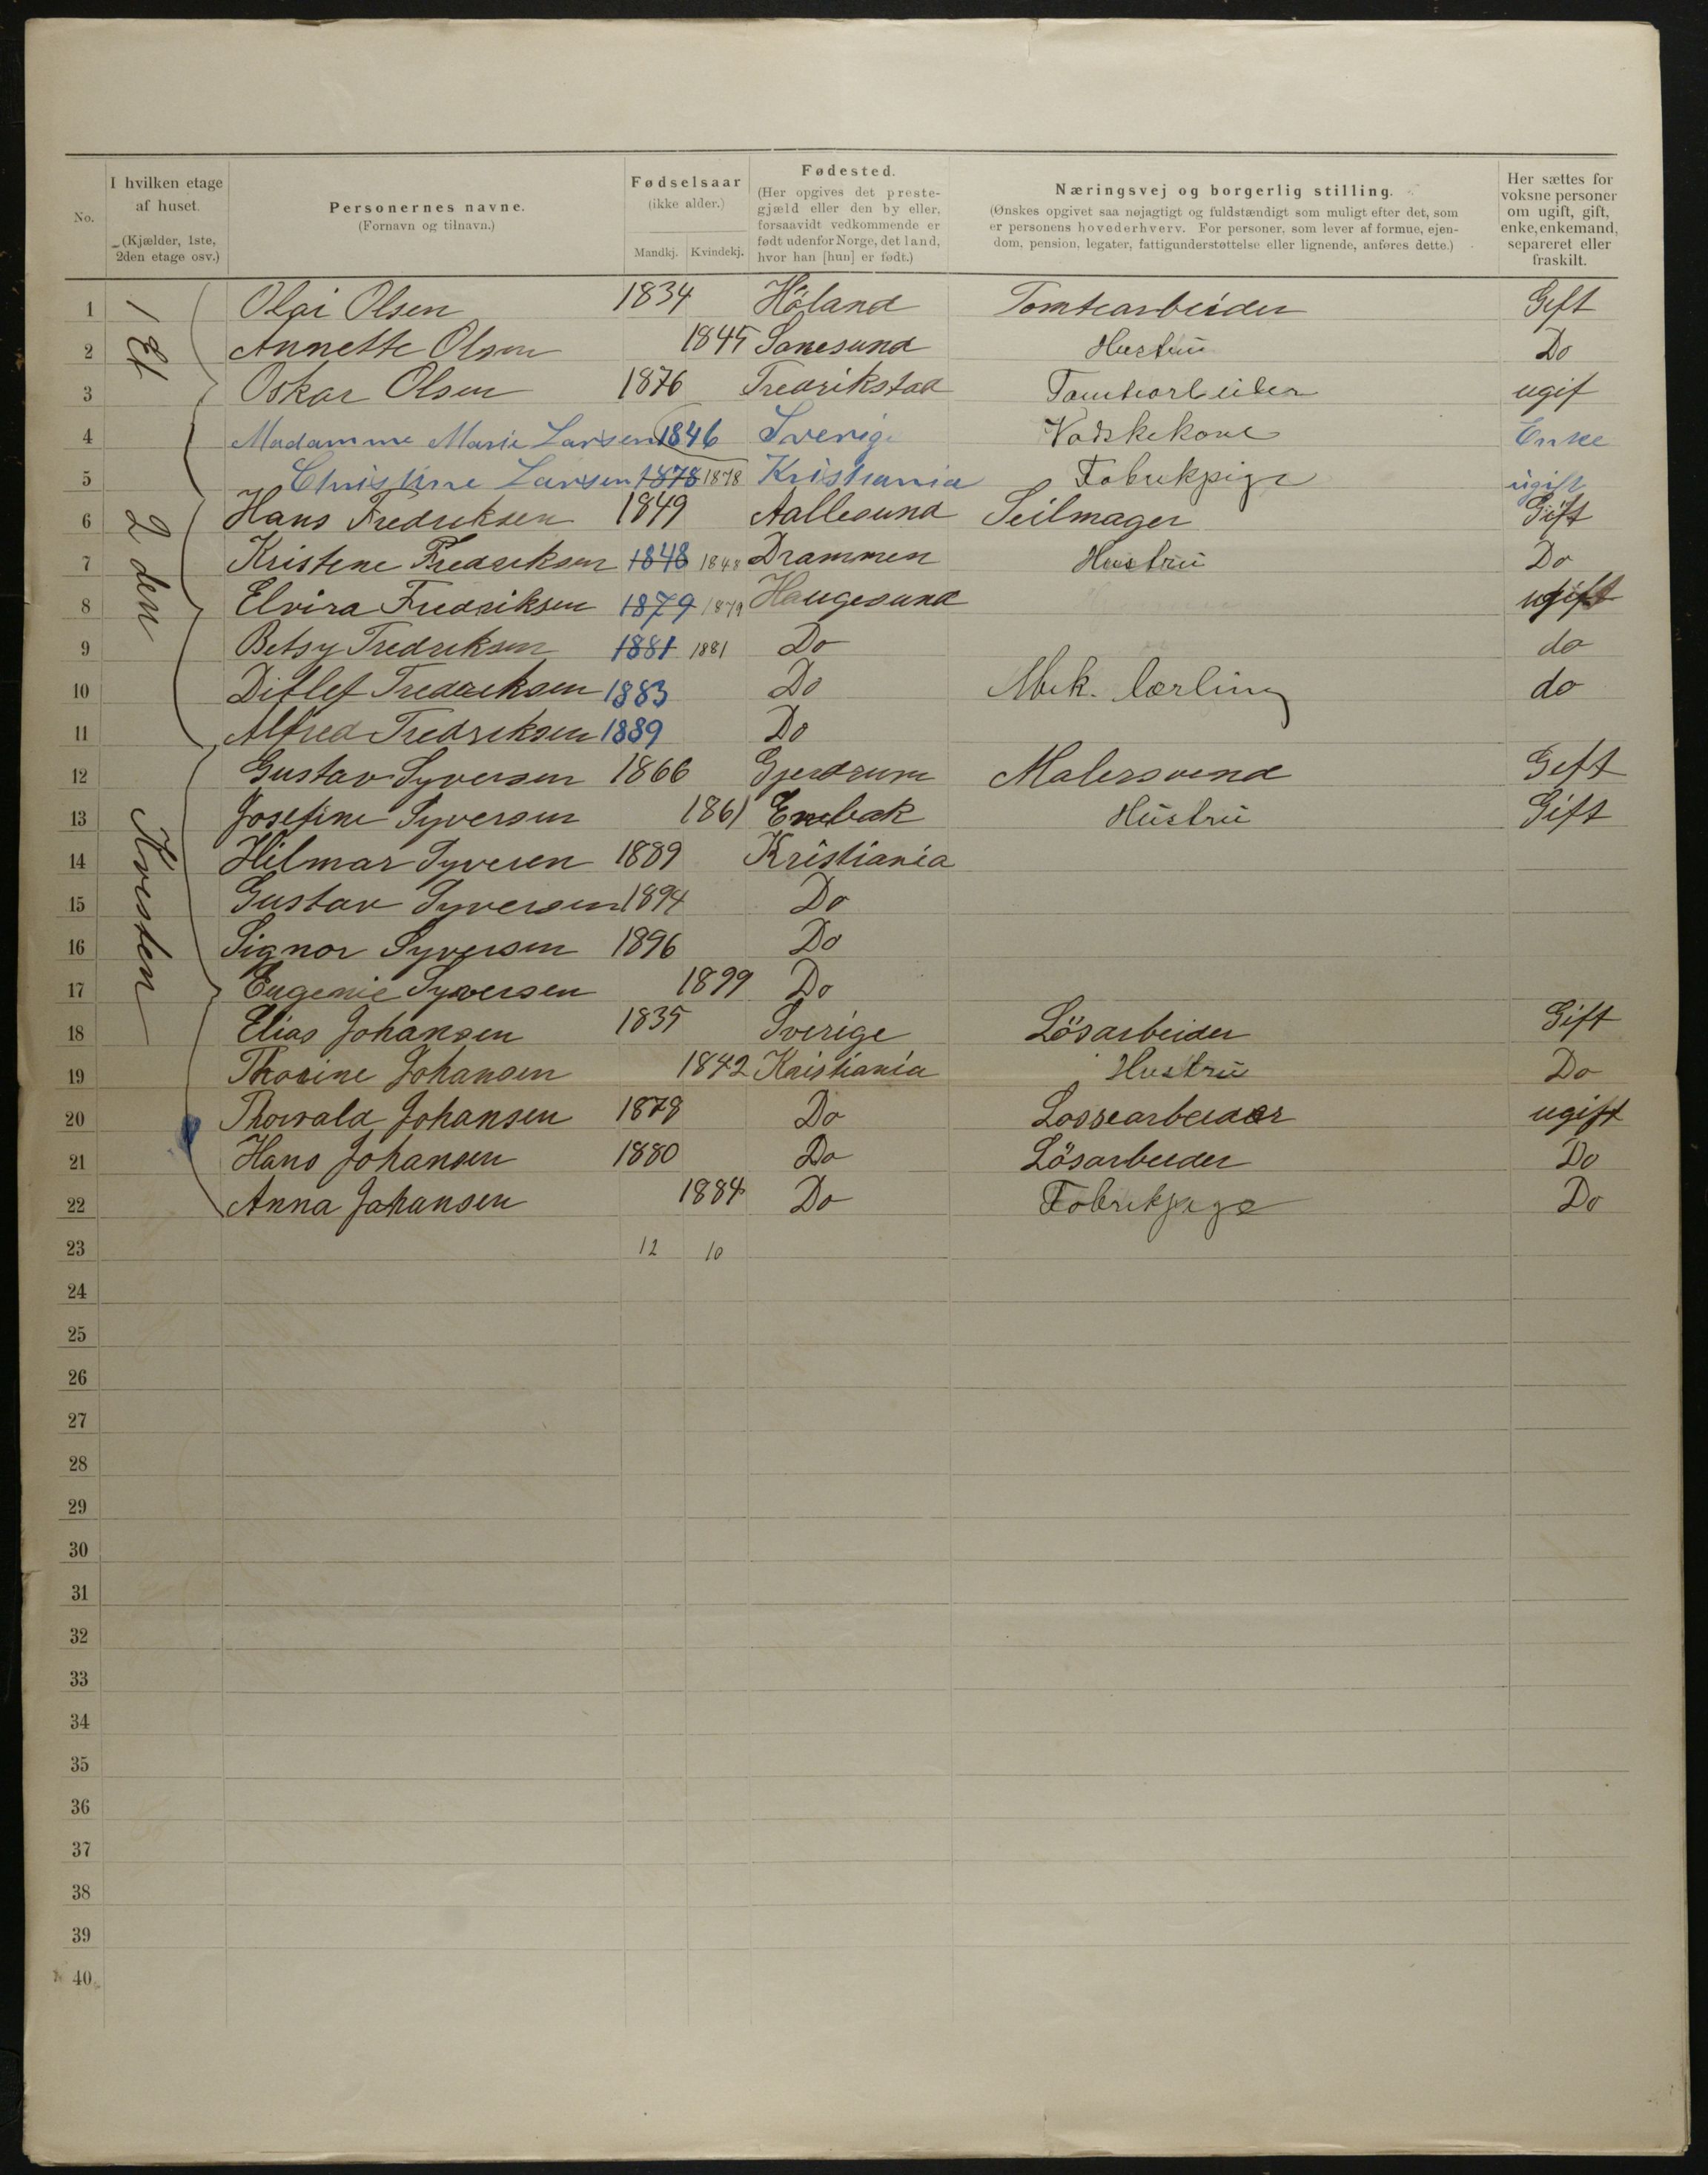 No.
I hvilken etage af huset. (Kjælder, 1ste, 2den etage osv.)
Personernes navne. (Fornavn og tilnavn.)
Fødselsaar (ikke alder.) Mandkj. Kvindekj.
Fødested. (Her opgives det prestegjæld eller den by eller, forsaavidt vedkommende er født udenfor Norge, det land, hvor han [hun] er født.)
Næringsvej og borgerlig stilling. (Ønskes opgivet saa nøjagtigt og fuldstændigt som muligt efter det, som er personens hovederhverv. For personer, som lever af formue, ejendom, pension, legater, fattigunderstøttelse eller lignende, anføres dette.)
Her sættes for voksne personer om ugift, gift, enke, enkemand, separeret eller fraskilt.
1 Et
1 Olai Olsen 1834 Höland Tomtearbeider Gift
2 Annette Olsen 1845 Sanesund Hustru Do
3 Oskar Olsen 1876 Fredrikstad Tomtearbeider ugif
4 Madamme Marie Larsen 1846 Sverige Vadskekone Enke
5 Christine Larsen 1878 1878 Kristiania Fabrikpige ugift
2 den
6 Hans Fredriksen 1849 Aallesund Seilmager Gift
7 Kristene Fredriksen 1848 1848 Drammen Hustru Do
8 Elvira Fredriksen 1879 1879 Haugesund ugift
9 Betsy Fredriksen 1881 1881 Do do
10 Ditlef Fredriksen 1883 Do Mek. lærling do
11 Alfred Fredriksen 1889 Do
Kvisten
12 Gustav Syversen 1866 Gjerdrum Malersvend Gift
13 Josefine Syversen 1861 Enebak Hustru Gift
14 Hilmar Syvesen 1889 Kristiania
15 Gustav Syversen 1894 Do
16 Signor Syversen 1896 Do
17 Eugenie Syversen 1899 Do
18 Elias Johansen 1835 Sverige Lösarbeider Gift
19 Thorine Johansen 1842 Kristiania Hustru Do
20 Thorvald Johansen 1878 Do Lossearbeider ugift
21 Hans Johansen 1880 Do Lösarbeider Do
22 Anna Johansen 1884 Do Fabrikpige Do
23 12 10
24
25
26
27
28
29
30
31
32
33
34
35
36
37
38
39
40